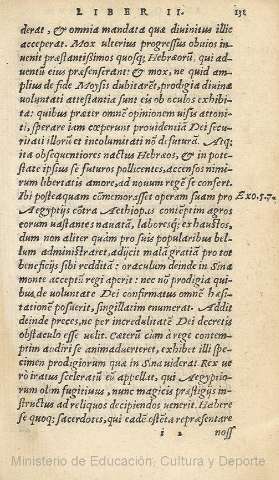 LIBER II.
131
derat, & omnia mandata quæ diuinitus illic
acceperat. Mox ulterius progressus obuios in-
uenit præstantissimos quosq; Hebræorũ, qui ad-
uentũ eius præsenserant: & mox, ne quid am-
plius de fide Moysis dubitarẽt, prodigia diuinæ
uoluntati attestantia sunt eis ob oculos exhibi-
ta: quibus præter omnẽ opinionem uisis attoni-
ti, sperare iam cœperunt prouidentiã Dei secu-
ritati illorũ et incolumitati nõ defuturã. Atq;
ita obsequentiores nactus Hebræos, & in pote-
state ipsius se futuros pollicentes, accensos nimi-
rum libertatis amore, ad nouum regẽ se confert.
Ibi posteaquam cõmemorasset operam suam pro
Exo.5.7.
Aegyptijs cõtra Aethiopas contẽptim agros
eorum uastantes nauatã, laboresq; exhaustos,
dum non aliter quàm pro suis popularibus bel-
lum administraret, adijcit malã gratiã pro tot
beneficijs sibi redditã: oraculum deinde in Sina
monte acceptũ regi aperit: nec nõ prodigia qui-
bus de uoluntate Dei confirmatus omnẽ hæsi-
tationem posuerit, singillatim enumerat. Addit
deinde preces, ne per incredulitatẽ Dei decretis
obstaculo esse uelit. Cæterũ cùm à rege contem-
ptim audiri se animaduerteret, exhibet illi spe-
cimen prodigiorum quæ in Sina uiderat. Rex ue
rò iratus sceleratũ eũ appellat, qui Aegyptio-
rum olim fugitiuus, nunc magicis præstigijs in-
structus ad reliquos decipiendos uenerit. Habere
se quoq; sacerdotes, qui eadẽ ostẽta repræsentare
i 2
noss
Ministerio de Educación, Cultura y Deporte